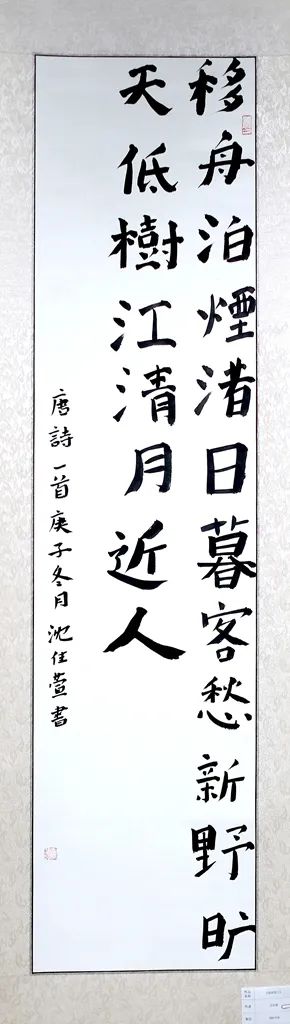 移舟泊煙渚日暮客愁新野旷
天低樹江清月近人
唐詩一首庚子冬月沈任萱書